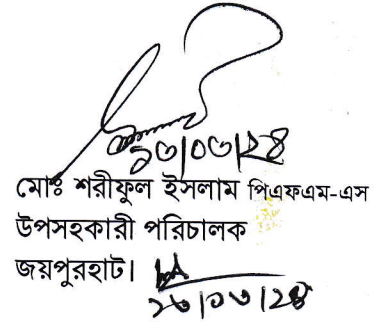 ২৩/০৩/২৪
মোঃ শরীফুল ইসলাম পিএফএম-এস
উপসহকারী পরিচালক
জয়পুরহাট।
২৩/০৩/২৪